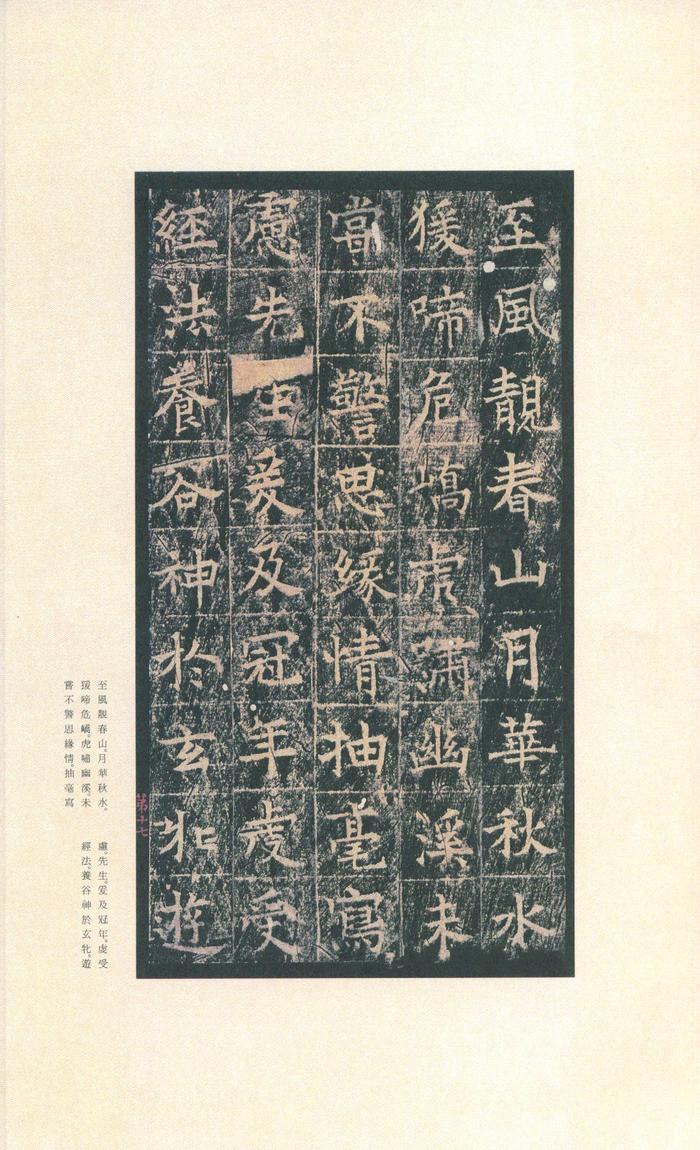 至風靚春山月華秋水
猨啼危嶠虎嘯幽溪未
嘗不警思緣情抽毫寫
慮先生爰及冠年虔受
經法養谷神於玄牝遊
第十七
至風靚春山。月華秋水。
猨啼危嶠。虎嘯幽溪。未
嘗不警思緣情。抽毫寫
慮。先生。爰及冠年。虔受
經法。養谷神於玄牝。遊